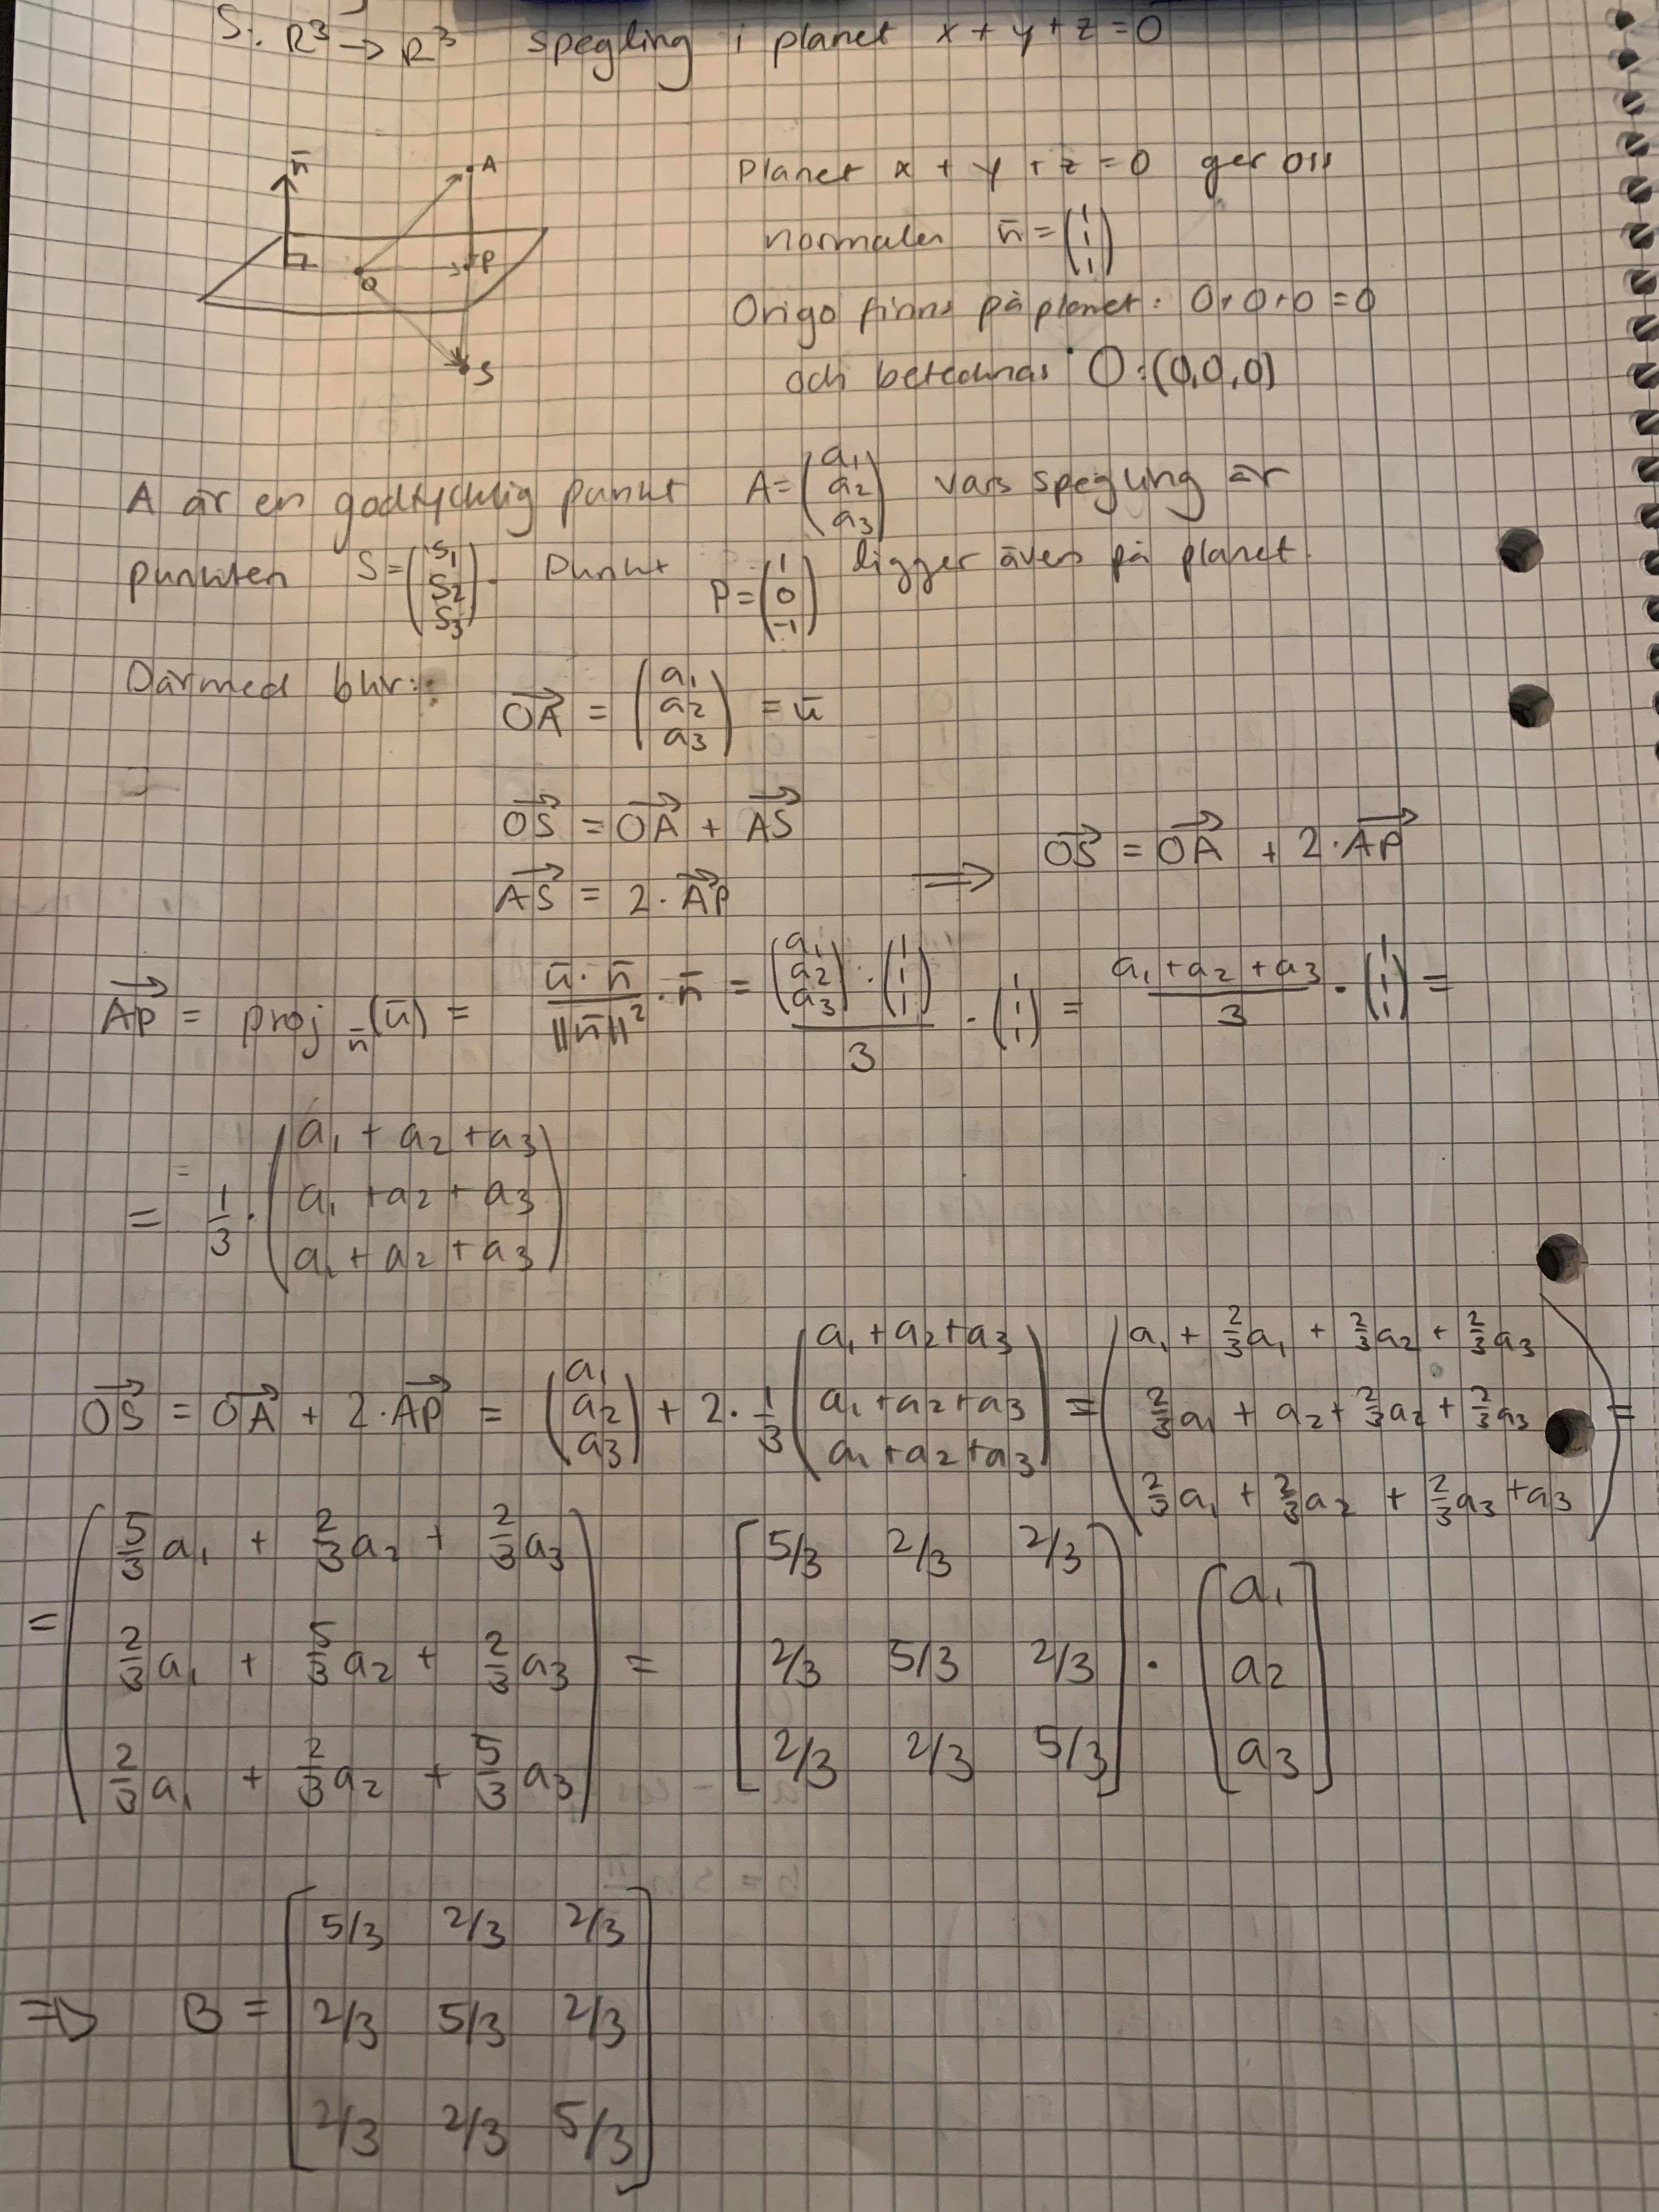 S: R³ → R³ spegling i planet x + y + z = 0
n̄
A
O
P
S
Planet x + y + z = 0 ger oss
normalen n̄ = (1 1 1)
Origo finns på planet: 0+0+0 = 0
och betecknas O:(0,0,0)
A är en godtycklig punkt A = (a₁ a₂ a₃) vars spegling är
punkten S = (s₁ s₂ s₃). Punkt P = (1 0 -1) ligger även på planet.
Därmed blir: OA→ = (a₁ a₂ a₃) = ū
OS→ = OA→ + AS→
AS→ = 2·AP→ ⟹ OS→ = OA→ + 2·AP→
AP→ = proj n̄ (ū) = ū·n̄ / ||n̄||² · n̄ = (a₁ a₂ a₃)·(1 1 1) / 3 · (1 1 1) = a₁+a₂+a₃ / 3 · (1 1 1) =
= 1/3 · (a₁+a₂+a₃
a₁+a₂+a₃
a₁+a₂+a₃)
OS→ = OA→ + 2·AP→ = (a₁ a₂ a₃) + 2·1/3 (a₁+a₂+a₃ a₁+a₂+a₃ a₁+a₂+a₃) = (a₁ + 2/3a₁ + 2/3a₂ + 2/3a₃
2/3a₁ + a₂ + 2/3a₂ + 2/3a₃
2/3a₁ + 2/3a₂ + 2/3a₃ + a₃) =
= (5/3a₁ + 2/3a₂ + 2/3a₃
2/3a₁ + 5/3a₂ + 2/3a₃
2/3a₁ + 2/3a₂ + 5/3a₃) =
[5/3 2/3 2/3
2/3 5/3 2/3
2/3 2/3 5/3] · [a₁ a₂ a₃]
=> B = [5/3 2/3 2/3
2/3 5/3 2/3
2/3 2/3 5/3]